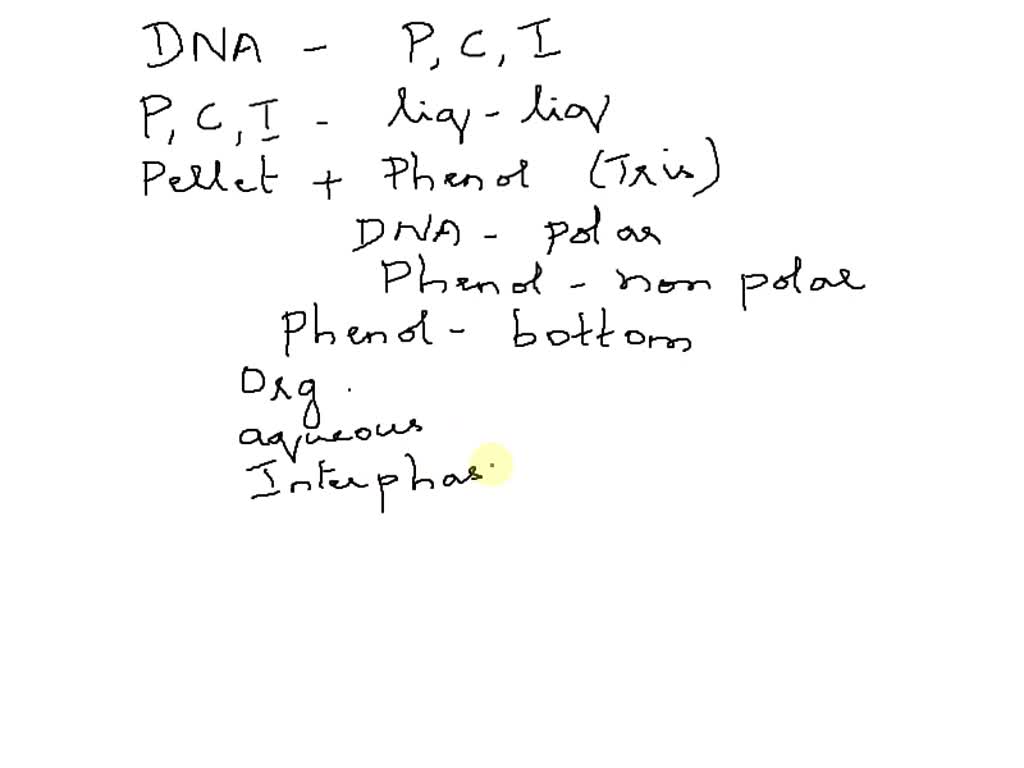 DNA - P, C, I
P, C, I - liq - liq
Pellet + Phenol (Tris)
DNA - polar
Phenol - non polar
Phenol - bottom
Org.
aqueous
Interphas